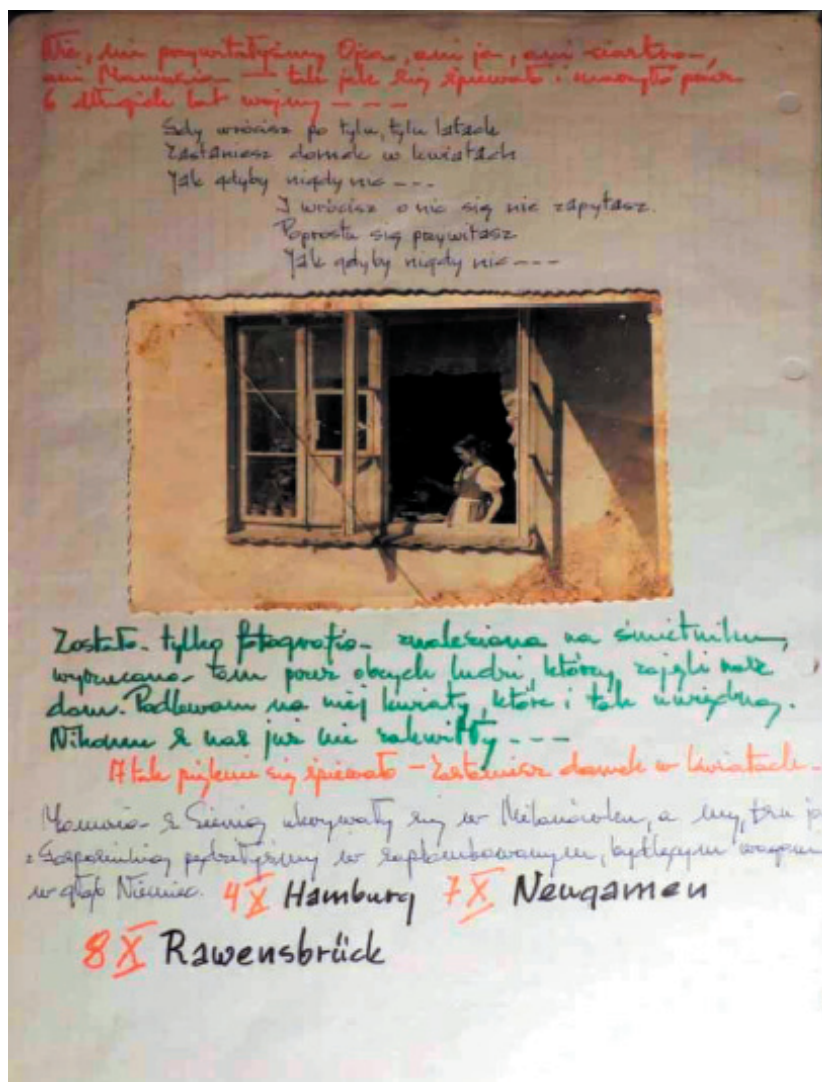 Nie, nie przywitałyśmy Ojca, ani ja, ani siostra,
ani Mamusia — tak jak się śpiewało i marzyło przez
6 długich lat wojny - - -
Gdy wrócisz po tylu, tylu latach
Zastaniesz domek w kwiatach
Jak gdyby nigdy nic ---
I wrócisz o nic się nie zapytasz.
Poprostu się przywitasz
Jak gdyby nigdy nic ---
Została tylko fotografia znaleziona na śmietniku,
wyrzucona tam przez obcych ludzi, którzy zajęli nasz
dom. Podlewam na niej kwiaty, które i tak uwiędną.
Nikomu z nas już nie zakwitły ---
A tak pięknie się śpiewało — Zastaniesz domek w kwiatach
Mamusia z Sienią ukrywały się w Milanówku, a my, tzn ja
z Gosposinką pędziłyśmy w zaplombowanym, bydlęcym wagonie
w głąb Niemiec. 4 X Hamburg 7 X Neugamen
8 X Rawensbrück